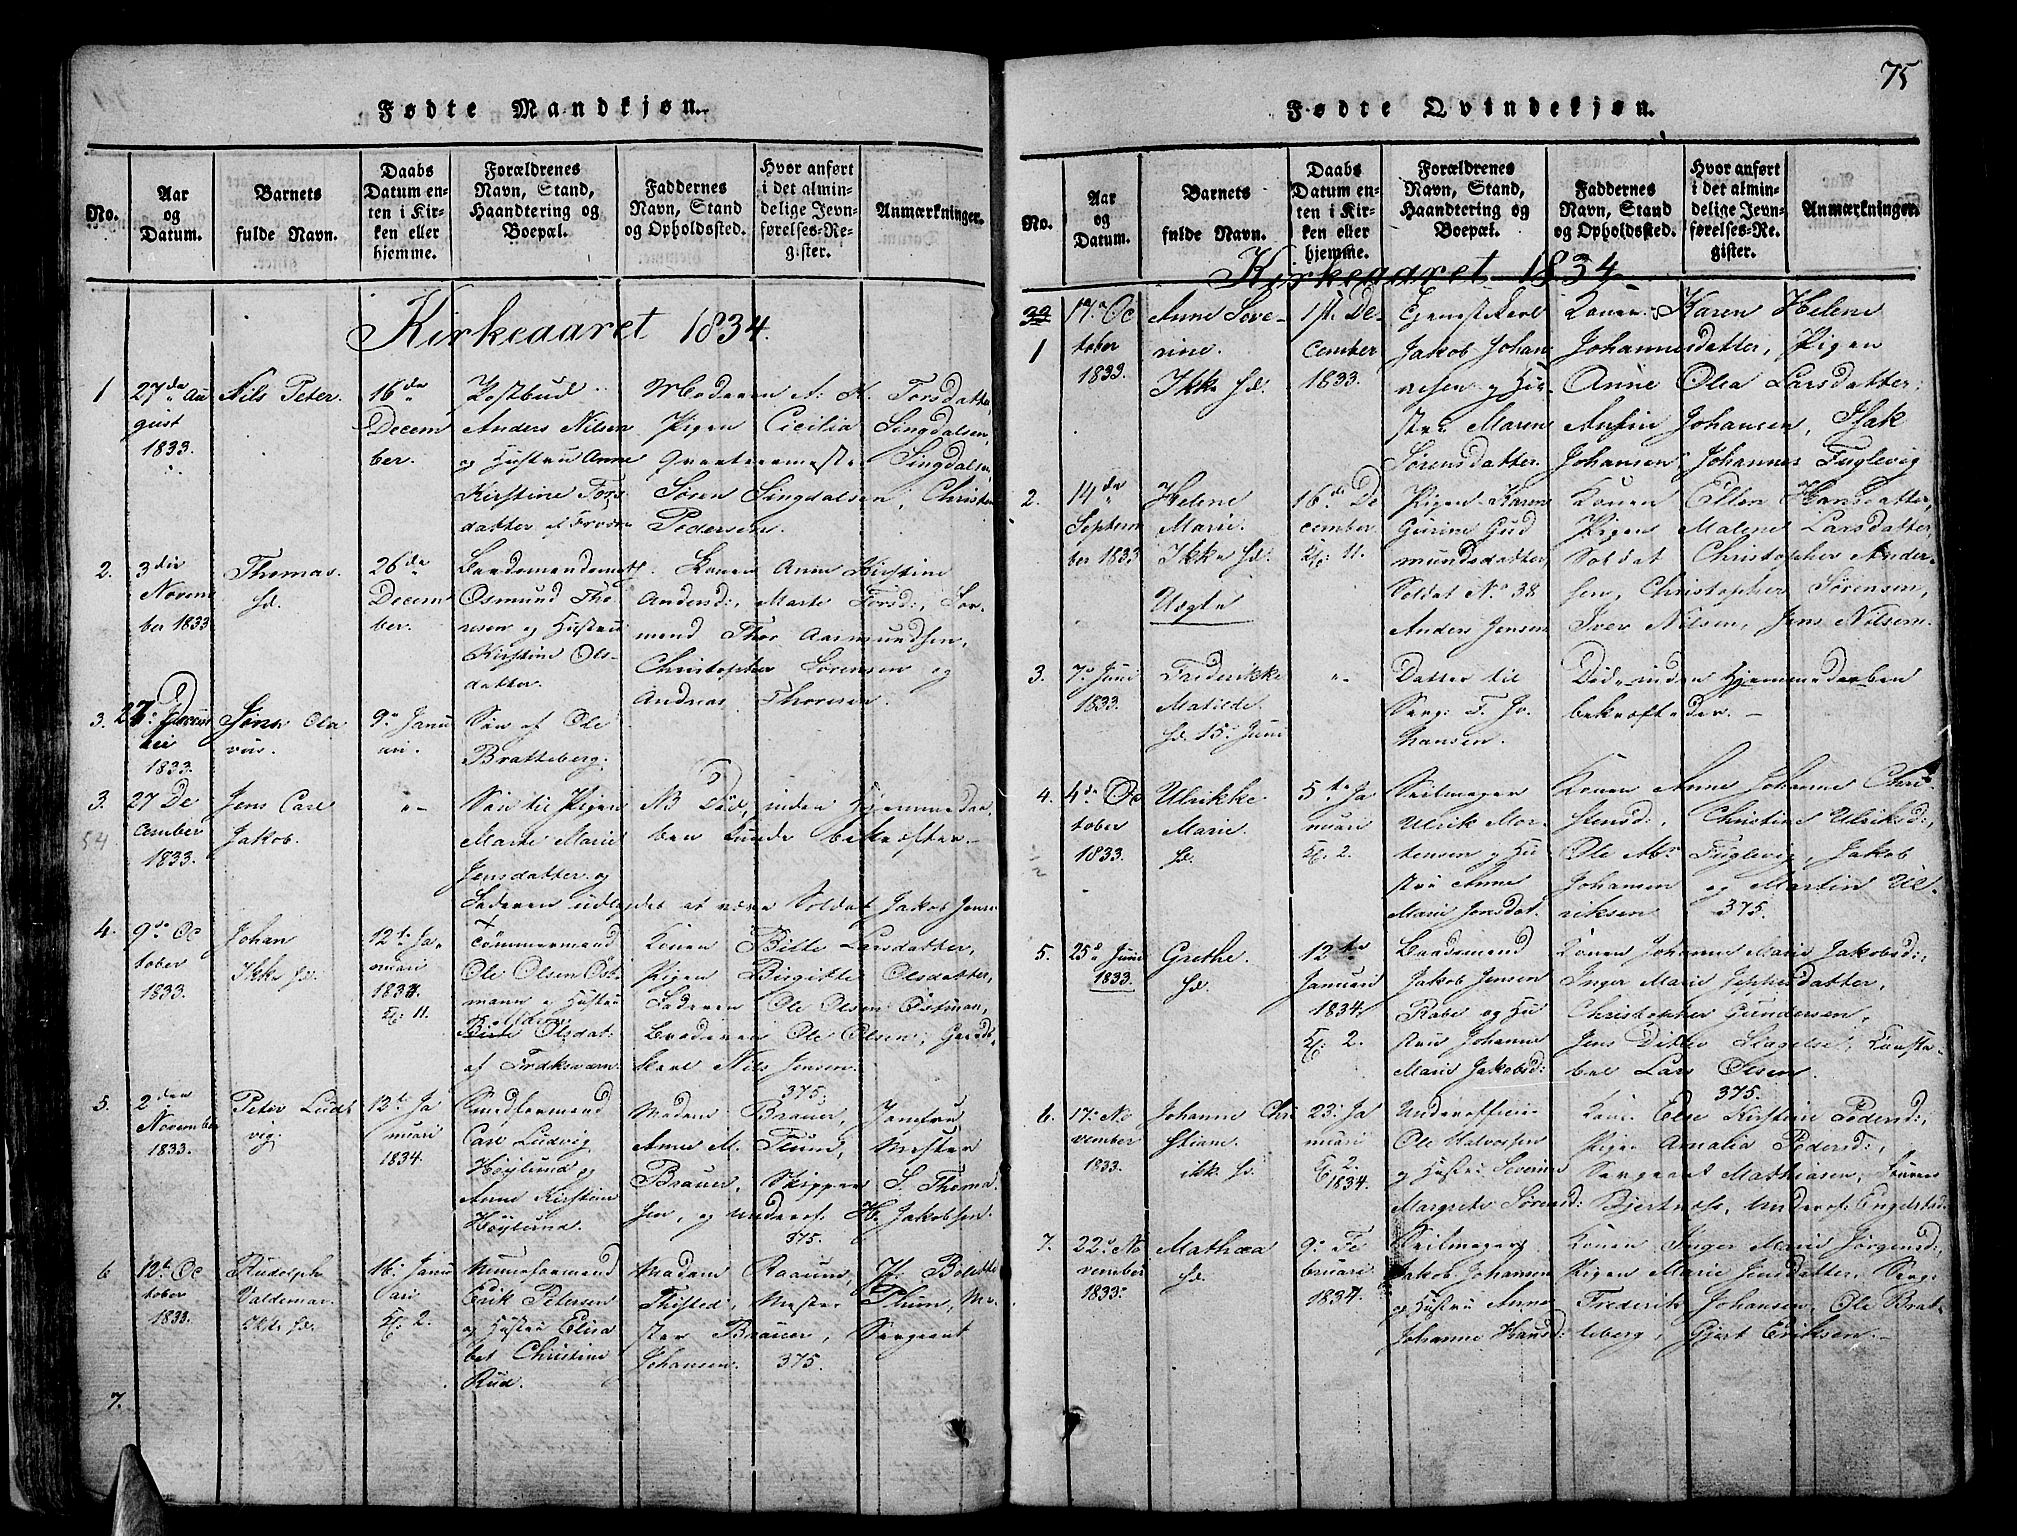 75
Fødte Mandkjøn.
No.
Aar og Datum.
Barnets fulde Navn.
Daabs Datum enten i Kirken eller hjemme.
Forældrenes Navn, Stand, Haandtering og Boepæl.
Faddernes Navn, Stand og Opholdssted.
Hvor anført i det almindelige Jevnførelses-Register.
Anmærkninger.
Kirkeaaret 1834.
1
27de Au
gust
1833.
Nils Peter.
16de
Decem
ber.
Postbud
Anders Nilsen
og Hustru Anne
Kirstine Tors
datter af
Moderen A. K. Torsdatter,
Pigen Cicilia Singdalsen,
Singdalsen,
Søren Singdalsen, Christen
Pedersen.
2.
3die
Novem
ber 1833
Thomas.
hd.
26de
Decem
ber.
Osmund Tho
resen og Hustru
Kirstine Ols-
datter.
Konen Anne Kirstine
Andersd:, Marte Torsd:,
Thor Aasmundsen,
Christopher Sørensen og
Andreas Thoresen.
3.
1833.
Jens Ola
vus.
9. Janu
ari.
Søn af Ole
Bratteberg.
3.
54
27 De
cember
1833.
Jens Carl
Jakob.
"-
Søn til Pigen
Marte Marie
Jensdatter og
Faderen udlagdes at være Soldat Jakob Jens
NB Død, inden Hjemmedaa-
ben kunde bekræftes.-
4.
9de Oc
tober
1833.
Johan
Ikke hd.
12te Ja-
nuari
1834.
Kp: 11.
Tømmermand
Ole Olsen Øst
mann og Hustru
Olsdat:
af Fredriksværn
Konen Bitte Larsdatter,
Pigen Birgitte Olsdatter,
Faderen Ole Olsen Østman,
Broderen Ole Olsen,
Nils Jensen.
375.
5.
2den
November
1833.
Peter Lud
vig.
12te Ja
nuari
1834.
Carl Ludvig
Høylund og
Anne Kirstine
Høylund.
Madam Brauer, Jomfru
Anne M. Mester
Brauer, Skipper S. Thoma
sen, og Underof. H. Jakobsen.
375.
6
12te Oc
tober
1833.
Rudolph
Valdemar.
Ikke hd.
16. Janu
ari
Kp: 2.
Erik Petersen
og Hustru Elisa
bet Christine
Rud.
Madam Bolette
Thisted, Mester Thum, Me-
ster Brauer, Sergeant
Johansen. 375.
7.
Fødte Qvindekjøn.
No.
Aar og Datum.
Barnets fulde Navn.
Daabs Datum enten i Kirken eller hjemme.
Forældrenes Navn, Stand, Haandtering og Boepæl.
Faddernes Navn, Stand og Opholdssted.
Hvor anført i det almindelige Jevnførelses-Register.
Anmærkninger.
Kirkeaaret 1834
1
17. Oc
tober
1833.
Anne Seve-
rine.
Ikke hd.
1st. De-
cember
1833.
Jakob Johan
nesen og Hu-
stru Maren
Sørensdatter.
Konen Karen Helene
Johannesdatter, Pigen
Anne Olea Larsdatter,
Johansen, Isak
Johansen, Johannes Fuglevig
2.
14de
Septem
ber 1833
Helene
Marie.
Ikke hd.
Uægte
16. De
cember.
Kp: 11.
Pigen Karen
Gurine Gud
mundsdatter
Soldat No 38
Anders Jensen
Konen Ellen Hansdatter,
Pigen Malene Larsdatter,
Soldat Christopher Ander-
sen, Christopher Sørensen,
Iver Nilsen, Jens Nilsen.
3.
7. Juni
1833.
Frederikke
Matilde.
hd. 15. Juni
"-
Datter til
Serg: F. Jo
hansen.
Død inden Hjemmedaaben
bekræftedes.-
4.
4de Oc
tober
1833.
Ulrikke
Marie.
hd.
5te Ja
nuari
Kp: 2.
Seilmager
Ulrik Mor-
tensen og Hu
stru Anne
Marie Jensdat.
Konen Anne Johanne Chri-
stensd:, Christine Ulriksd:,
Ole Abr. Fuglevig, Jakob
Johansen og Martin Ul-
riksen 375.
5.
25. Juni
1833.
Grethe.
hd.
12te
Januari
1834.
Kp: 2.
Baadsmand
Jakob Jensen
Rabe og Hu
stru Johanne
Marie Jakobsd:
Konen Johanne Marie Jakobsd:,
Inger Marie Jeppesdatter,
Christopher Gundersen,
Jens Ditlev Slagelse, Konsta-
bel Lars Olsen.
375.
6.
17. No
vember
1833.
Johanne Chri
stiane.
ikke hd.
23. Ja
nuari
Kp 2.
1834.
Underofficer
Ole Halvorsen
og Hustru Severine
Margrete Sørensd:
Kone Else Kirstine Pedersd:,
Pigen Amalia Pedersd:,
Sergeant Mathiasen,
Bjertnæs, Underof: Engelstad
7.
22. No
vember
1833.
Mathæa
hd.
9. Fe
bruari
1834
Seilmager
Jakob Johansen
og Hustru Anne
Johanne Hansd:
Konen Inger Marie Jørgensd:,
Pigen Marie Jensdatter, Serg:
Frederik Johansen, Ole Brat-
teberg, Gjert Eriksen.-